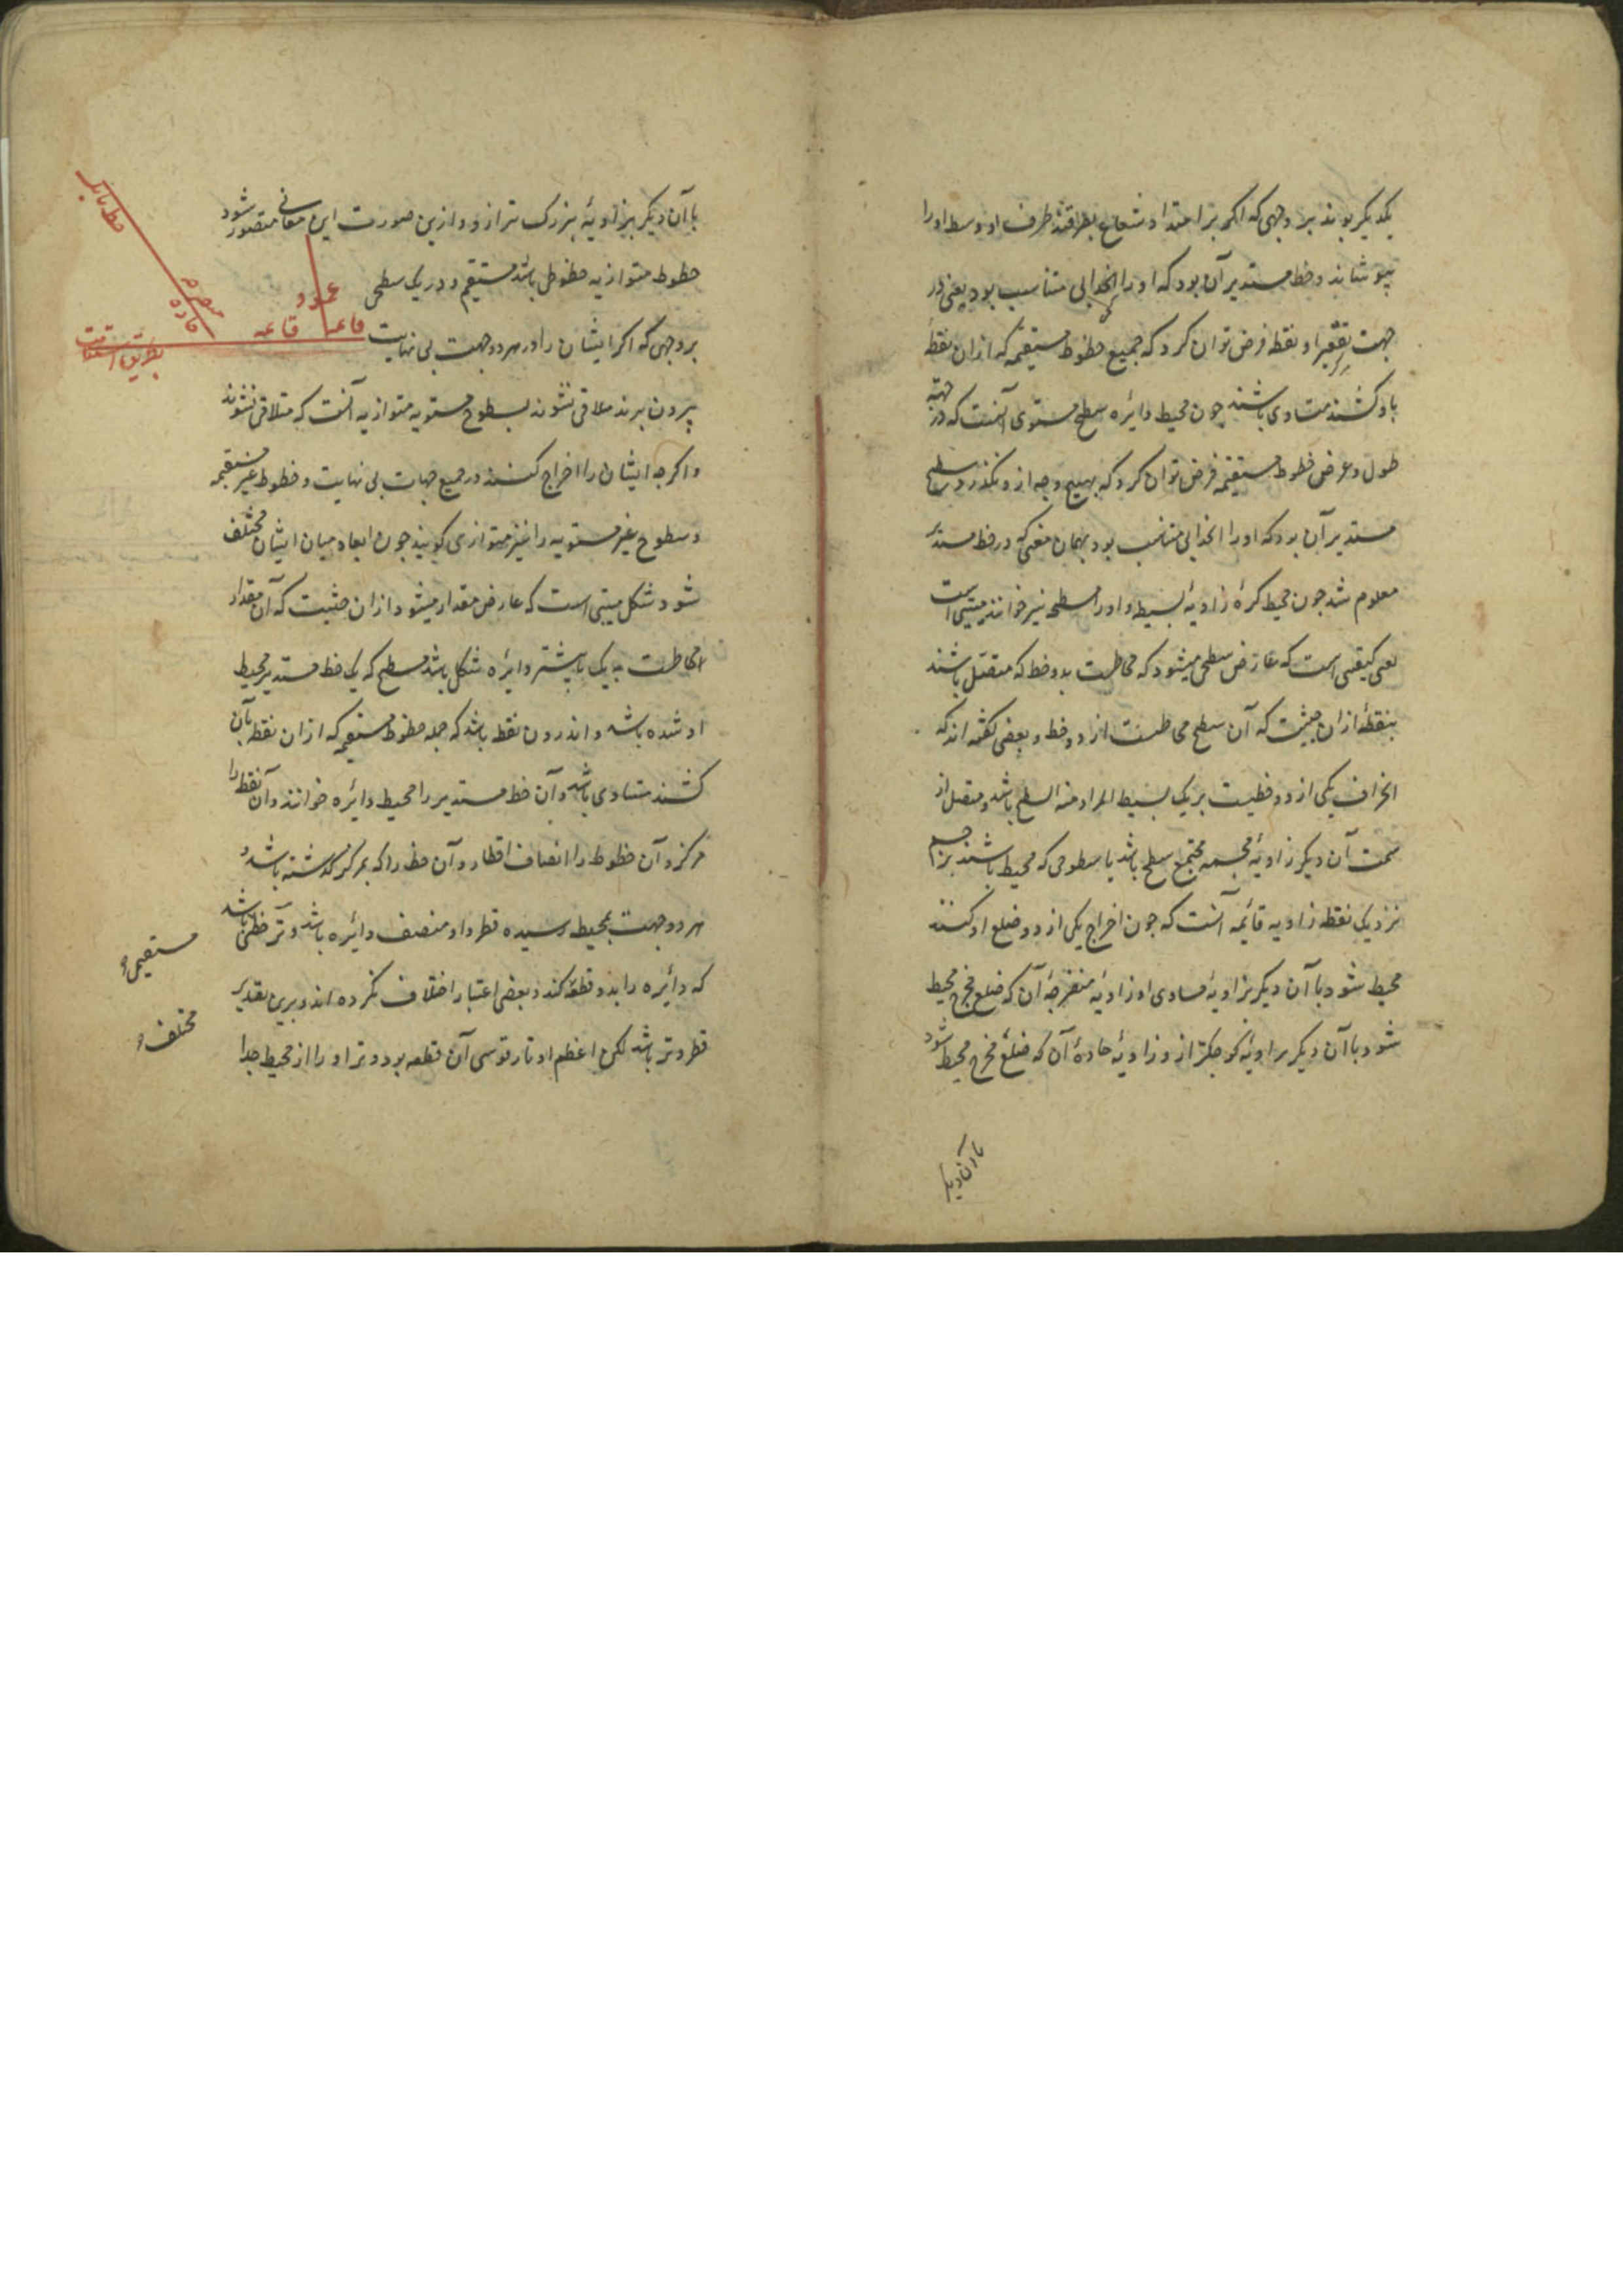 یکدیکر بوند بر وجهی که اکر بر امتداد شعاع بصر افتند طرف او وسط او را
بپوشاند و خط مستدیر آن بود که او را انحدابی متناسب بود یعنی در
جهت تقعیر او نقطه فرض توان کرد که جمیع خطوط مستقیمه که از ان نقطه
باو کشند متساوی باشند چون محیط دایره سطح مستوی آنست که در جهة
طول و عرض خطوط مستقیمه فرض توان کرد که بهیچ وجه ازو نکذرد و سطح
مستدیر آن بود که او را انحدابی متناسب بود بهمان معنی که در خط مستدیر
معلوم شد چون محیط کره زاویهٔ بسیطه و او را مسطحه نیز خوانند هیئتی است
یعنی کیفیتی است که عارض سطحی میشود که محاطست بدو خط که متصل باشند
بنقطهٔ از ان حیثیت که آن سطح محاطست از دو خط و بعضی کفته اند که
انحراف یکی از دو خطیست بر یک بسیط المراد منه السطح باشد و متصل از
سمت آن دیکر زاویهٔ مجسمه مجتمع سطح باشد یا سطوحی که محیط باشند بر جسم
نزدیک نقطه زاویه قائمه آنست که چون اخراج یکی از دو ضلع او کنند
محیط شود با آن دیکر بزاویهٔ مساوی او زاویهٔ منفرجه آن که ضلع مخرج محیط
شود با آن دیکر بزاویهٔ کوچکتر ازو زاویهٔ حادهٔ آن که ضلع مخرج محیط شود
با آن دیکر
با آن دیکر بزاویهٔ بزرک تر ازو و ازین صورت این معانی متصور شود
خطوط متوازیه خطوطی باشد مستقیم و در یک سطحی
بر وجهی که اکر ایشان را در هر دو جهت بی نهایت
بیرون برند ملاقی نشوند سطوح مستویه متوازیه آنست که متلاقی نشوند
و اکرچه ایشان را اخراج کنند در جمیع جهات بی نهایت و خطوط غیر مستقیمه
و سطوح غیر مستویه را نیز متوازی کویند چون ابعاد میان ایشان مختلف
نشود شکل هیئتی است که عارض مقدار میشود از ان حیثیت که آن مقدار
محاطست بیک یا بیشتر دایره شکل باشد مسطح که یک خط مستدیر محیط
او شده باشد و اندرون نقطه باشد که جمله خطوط مستقیمه که از ان نقطه بآن
کشند متساوی باشد و آن خط مستدیر را محیط دایره خوانند و آن نقطه را
مرکز و آن خطوط را انصاف اقطار و آن خط را که بمرکز کذشته باشد و
هر دو جهت بمحیط رسیده قطر و او منصف دایره باشد و وتر خطی باشد
که دایره را بدو قطعه کند و بعضی اعتبار اختلاف نکرده اند و برین تقدیر
قطر وتر باشد لکن اعظم اوتار قوسی آن قطعه بود و وتر او را از محیط جدا
خط مایل
منفرجه
حاده
عمود
قائمه
قائمه
بطریق استقامت
مستقیمی
مختلف